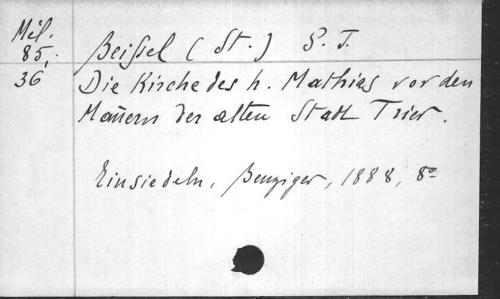 Mél.
85,
36
Beissel (St.) S. J.
Die Kirche des h. Mathias vor den
Mauern der alten Stadt Trier.
Einsiedeln, Benziger, 1888, 8°